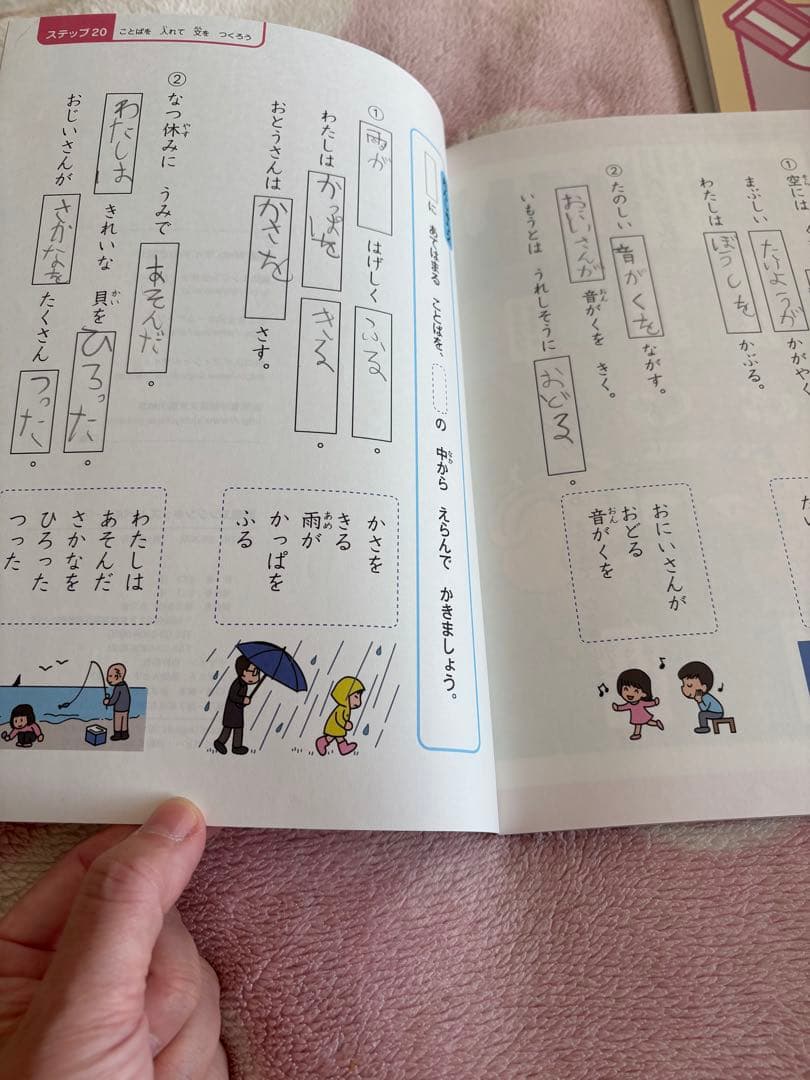 ①空には
まぶしい たいようが かがやく
わたしは ぼうしを かぶる。
②
たのしい 音がくを ながす。
おにいさんが 音がくを きく。
おん
いもうとは うれしそうに おどる。
おにいさんが
おどる
音がくを
おん
ステップ20 ことばを 入れて 文を つくろう
に あてはまる ことばを、 の 中から えらんで かきましょう。
なか
①
雨が はげしく ふる。
わたしは かっぱを きる。
おとうさんは かさを さす。
かさを
きる
雨が
あめ
かっぱを
ふる
②
なつ休みに うみで あそんだ。
やす
わたしは きれいな 貝を ひろった。
かい
おじいさんが さかなを たくさん つった。
わたしは
あそんだ
さかなを
ひろった
つった